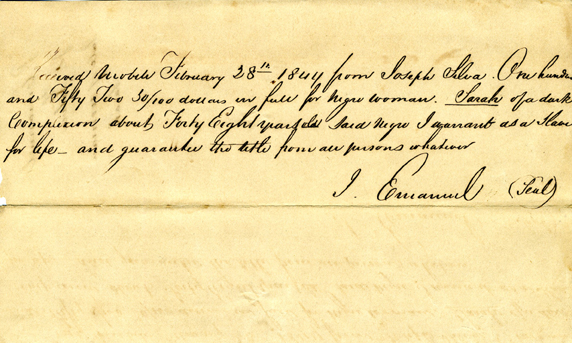 Received Mobile February 28th 1844 from Joseph Silva. One hundred
and Fifty Two 30/100 dollars in full for Negro woman. Sarah of a dark
Complexion about Forty Eight years old Said Negro I warrant as a Slave
for life - and guarantee the title from all persons whatever
J. Emanuel (Seal)